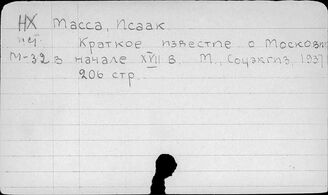 НХ Масса, Исаак.
ист. Краткое известие о Московии
М-32 в начале XVII в. М., Соцэкгиз, 1937
206 стр.